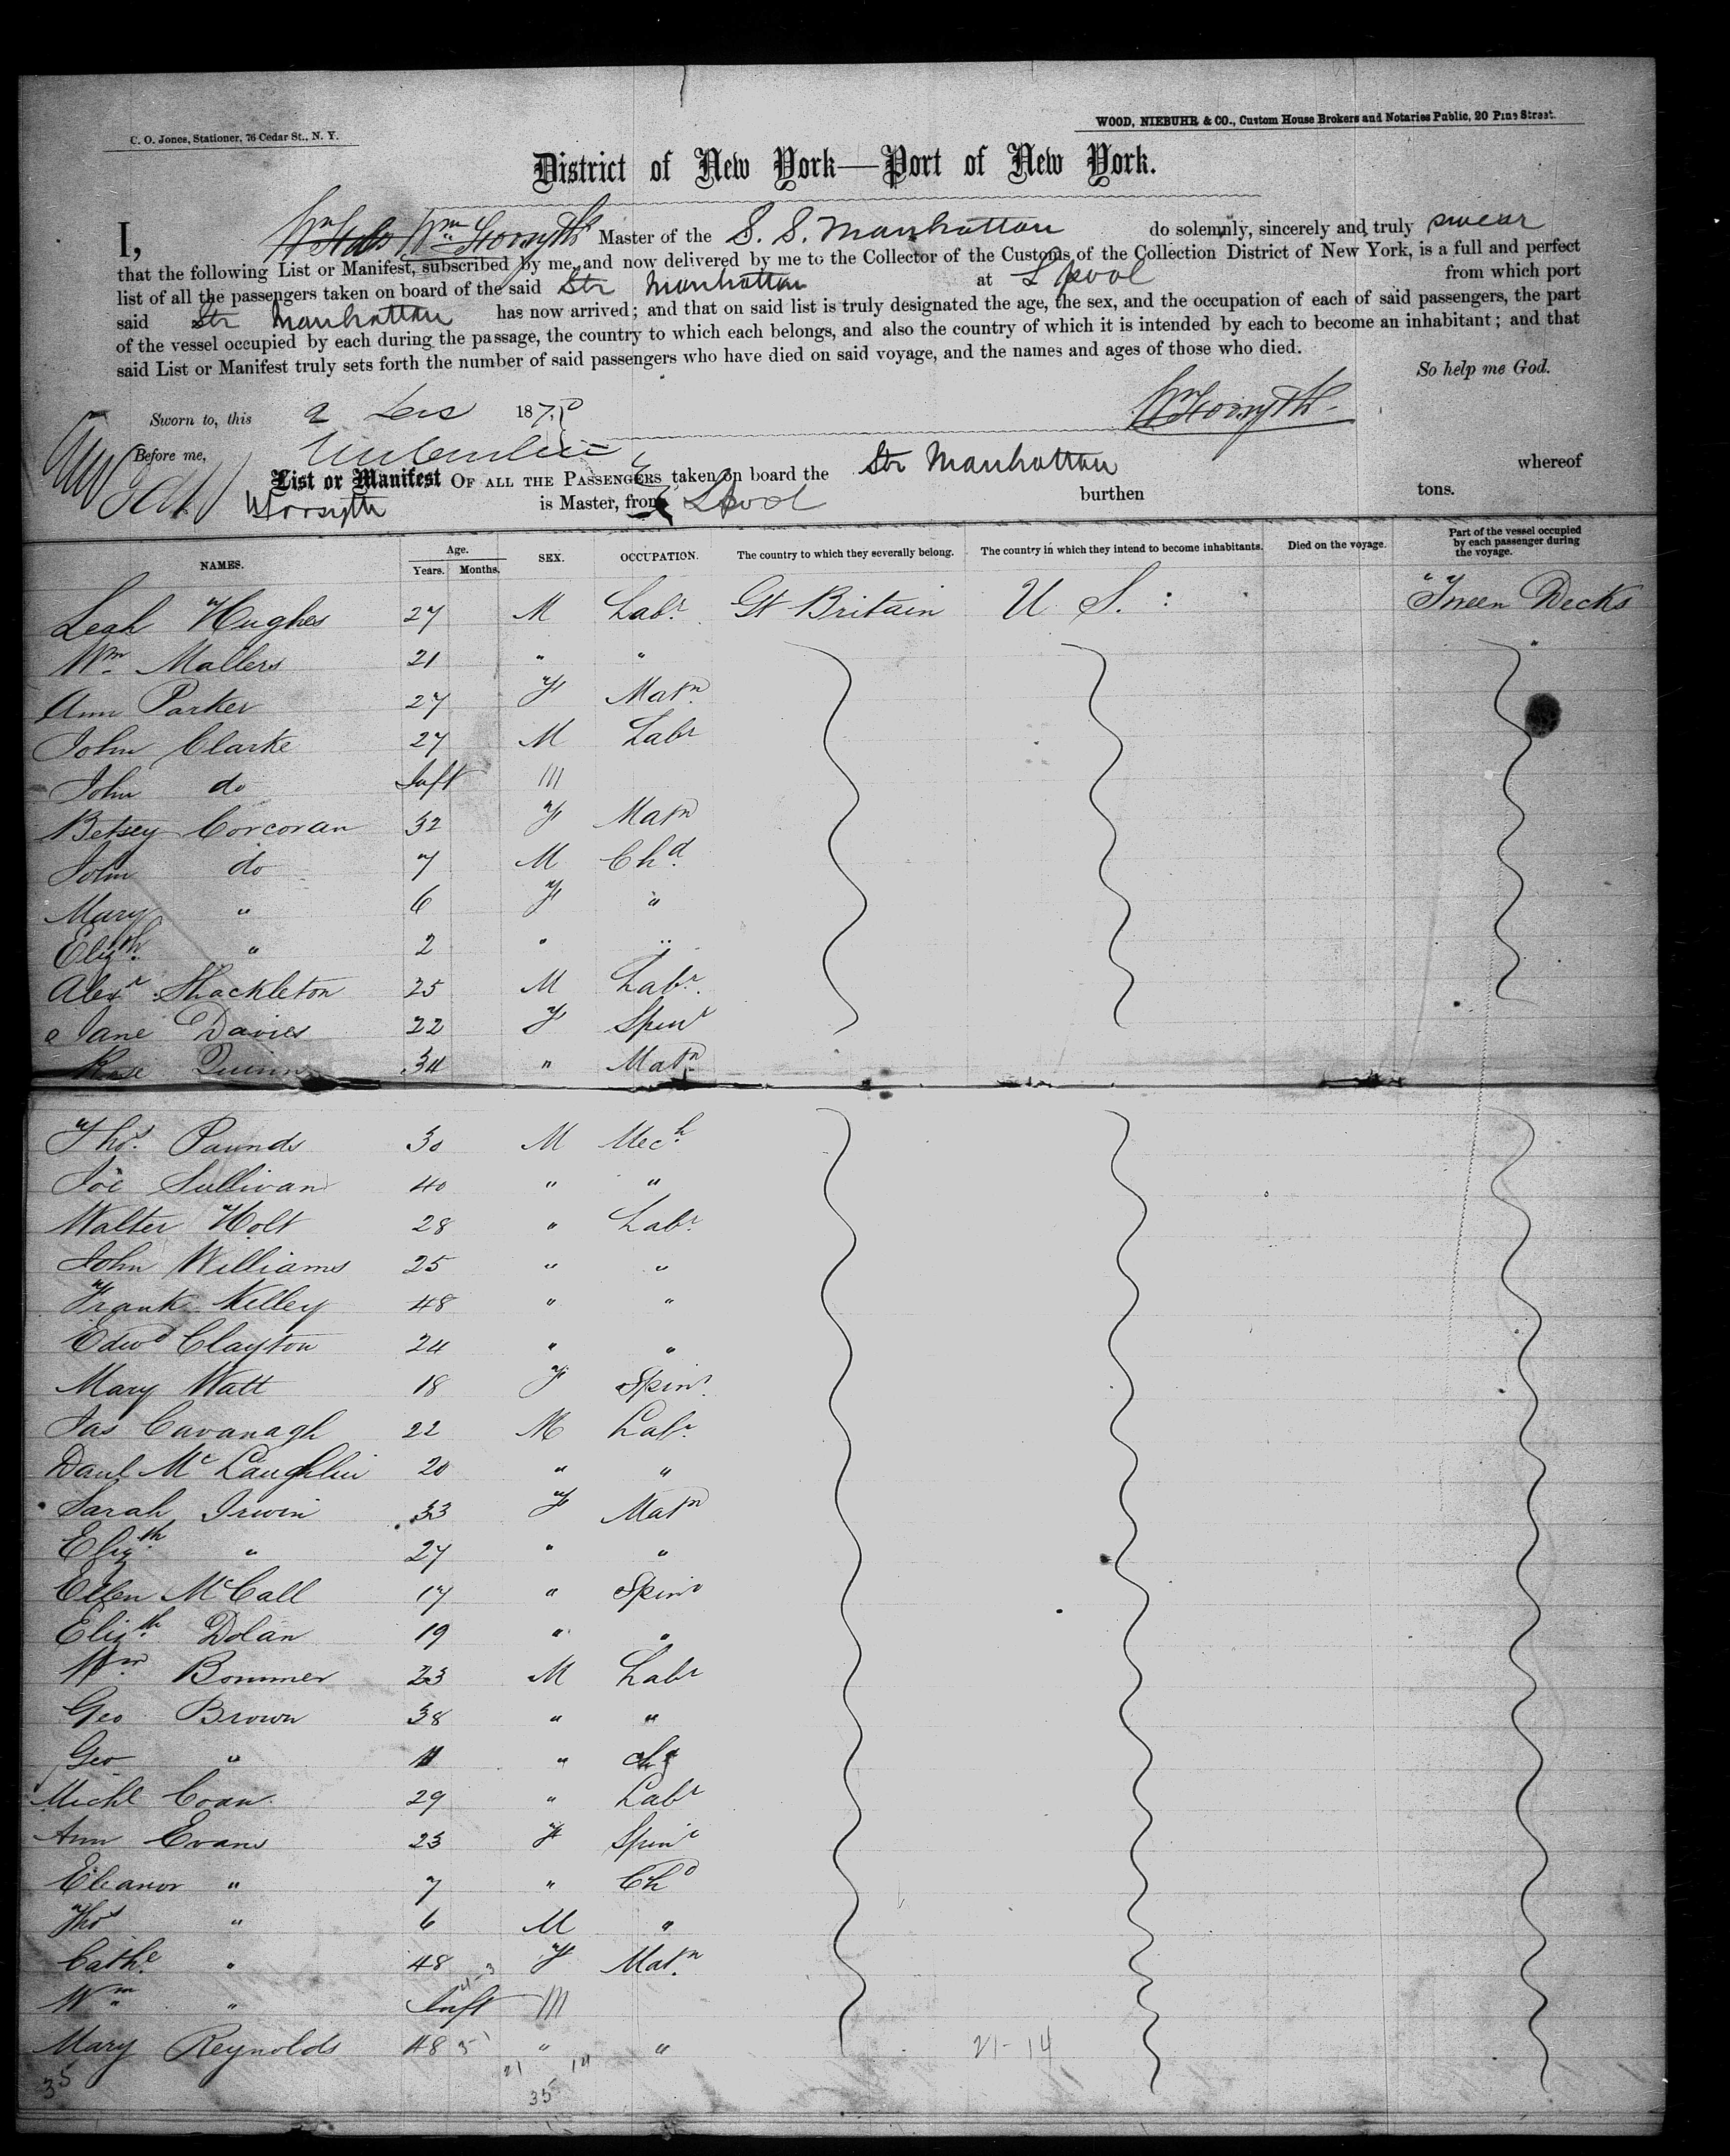 C. O. Jones, Stationer, 76 Cedar St., N. Y.
WOOD, NIEBUHR & CO., Custom House Brokers and Notaries Public, 20 Pine Street.
District of New York—Port of New York.
I, Wm Forsyth Master of the S. S. Manhattan do solemnly, sincerely and truly swear
that the following List or Manifest, subscribed by me, and now delivered by me to the Collector of the Customs of the Collection District of New York, is a full and perfect
list of all the passengers taken on board of the said Str Manhattan at L'pool from which port
said Str Manhattan has now arrived; and that on said list is truly designated the age, the sex, and the occupation of each of said passengers, the part
of the vessel occupied by each during the passage, the country to which each belongs, and also the country of which it is intended by each to become an inhabitant; and that
said List or Manifest truly sets forth the number of said passengers who have died on said voyage, and the names and ages of those who died.
So help me God.
Sworn to, this 2 187
Wm Forsyth
Before me,
List or Manifest OF ALL THE PASSENGERS taken on board the Str Manhattan whereof
W Forsyth is Master, from L'pool burthen tons.
NAMES. Age. Years. Months. SEX. OCCUPATION. The country to which they severally belong. The country in which they intend to become inhabitants. Died on the voyage. Part of the vessel occupied by each passenger during the voyage.
Leah Hughes 27 M Labr. Gt Britain U S. : Tween Decks
Wm Mallers 21 " " "
Ann Parker 27 F Matn
John Clarke 27 M Labr
John do Inft III
Betsey Corcoran 32 F Matn
John do 7 M Chd
Mary " 6 F "
Elizth " 2 " "
Alexr Shackleton 25 M Labr.
Jane Davies 22 F Spinr
Rose Quinn 34 " Matn
Thos Pounds 30 M Mech
Joe Sullivan 40 " "
Walter Holt 28 " Labr
John Williams 25 " "
Frank Kelley 48 " "
Edwd Clayton 24 " "
Mary Watt 18 F Spinr
Jas Cavanagh 22 M Labr
Danl McLaughlin 20 " "
Sarah Irwin 33 F Matn
Elizth " 27 " "
Ellen McCall 17 " Spinr
Elizth Dolan 19 " "
Wm Bommer 23 M Labr
Geo Brown 38 " "
Geo " 11 " Chd
Michl Coan 29 " Labr
Ann Evans 23 F Spinr
Eleanor " 7 " Chd
Thos " 6 M "
Cathe " 48 F Matn
Wm " Inft III
Mary Reynolds 48 " " 21-14
35 21 14
35